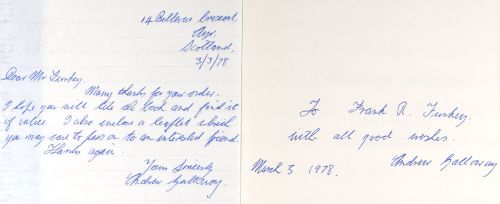 14 Bellevue Crescent,
Ayr,
Scotland.
3/3/78
Dear Mr Furkey
Many thanks for your order.
I hope you will like the book and find it
of value. I also enclose a leaflet which
you may care to pass on to an interested friend.
Thanks again.
Yours Sincerely
Andrew Galloway.
To Frank R. Furkey.
with all good wishes.
Andrew Galloway
March 3. 1978.